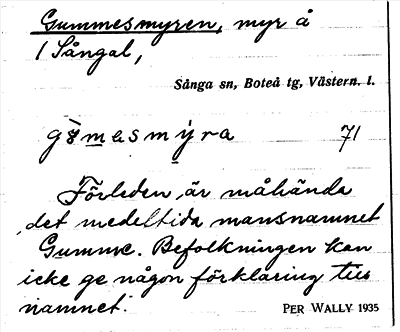 Gummesmyren, myr å
1 Sångal,
Sånga sn, Boteå tg, Västern. l.
gs̈mesmýra 71
Förleden är måhända
det medeltida mansnamnet
Gumme. Befolkningen kan
icke ge någon förklaring till
namnet.
PER WALLY 1935